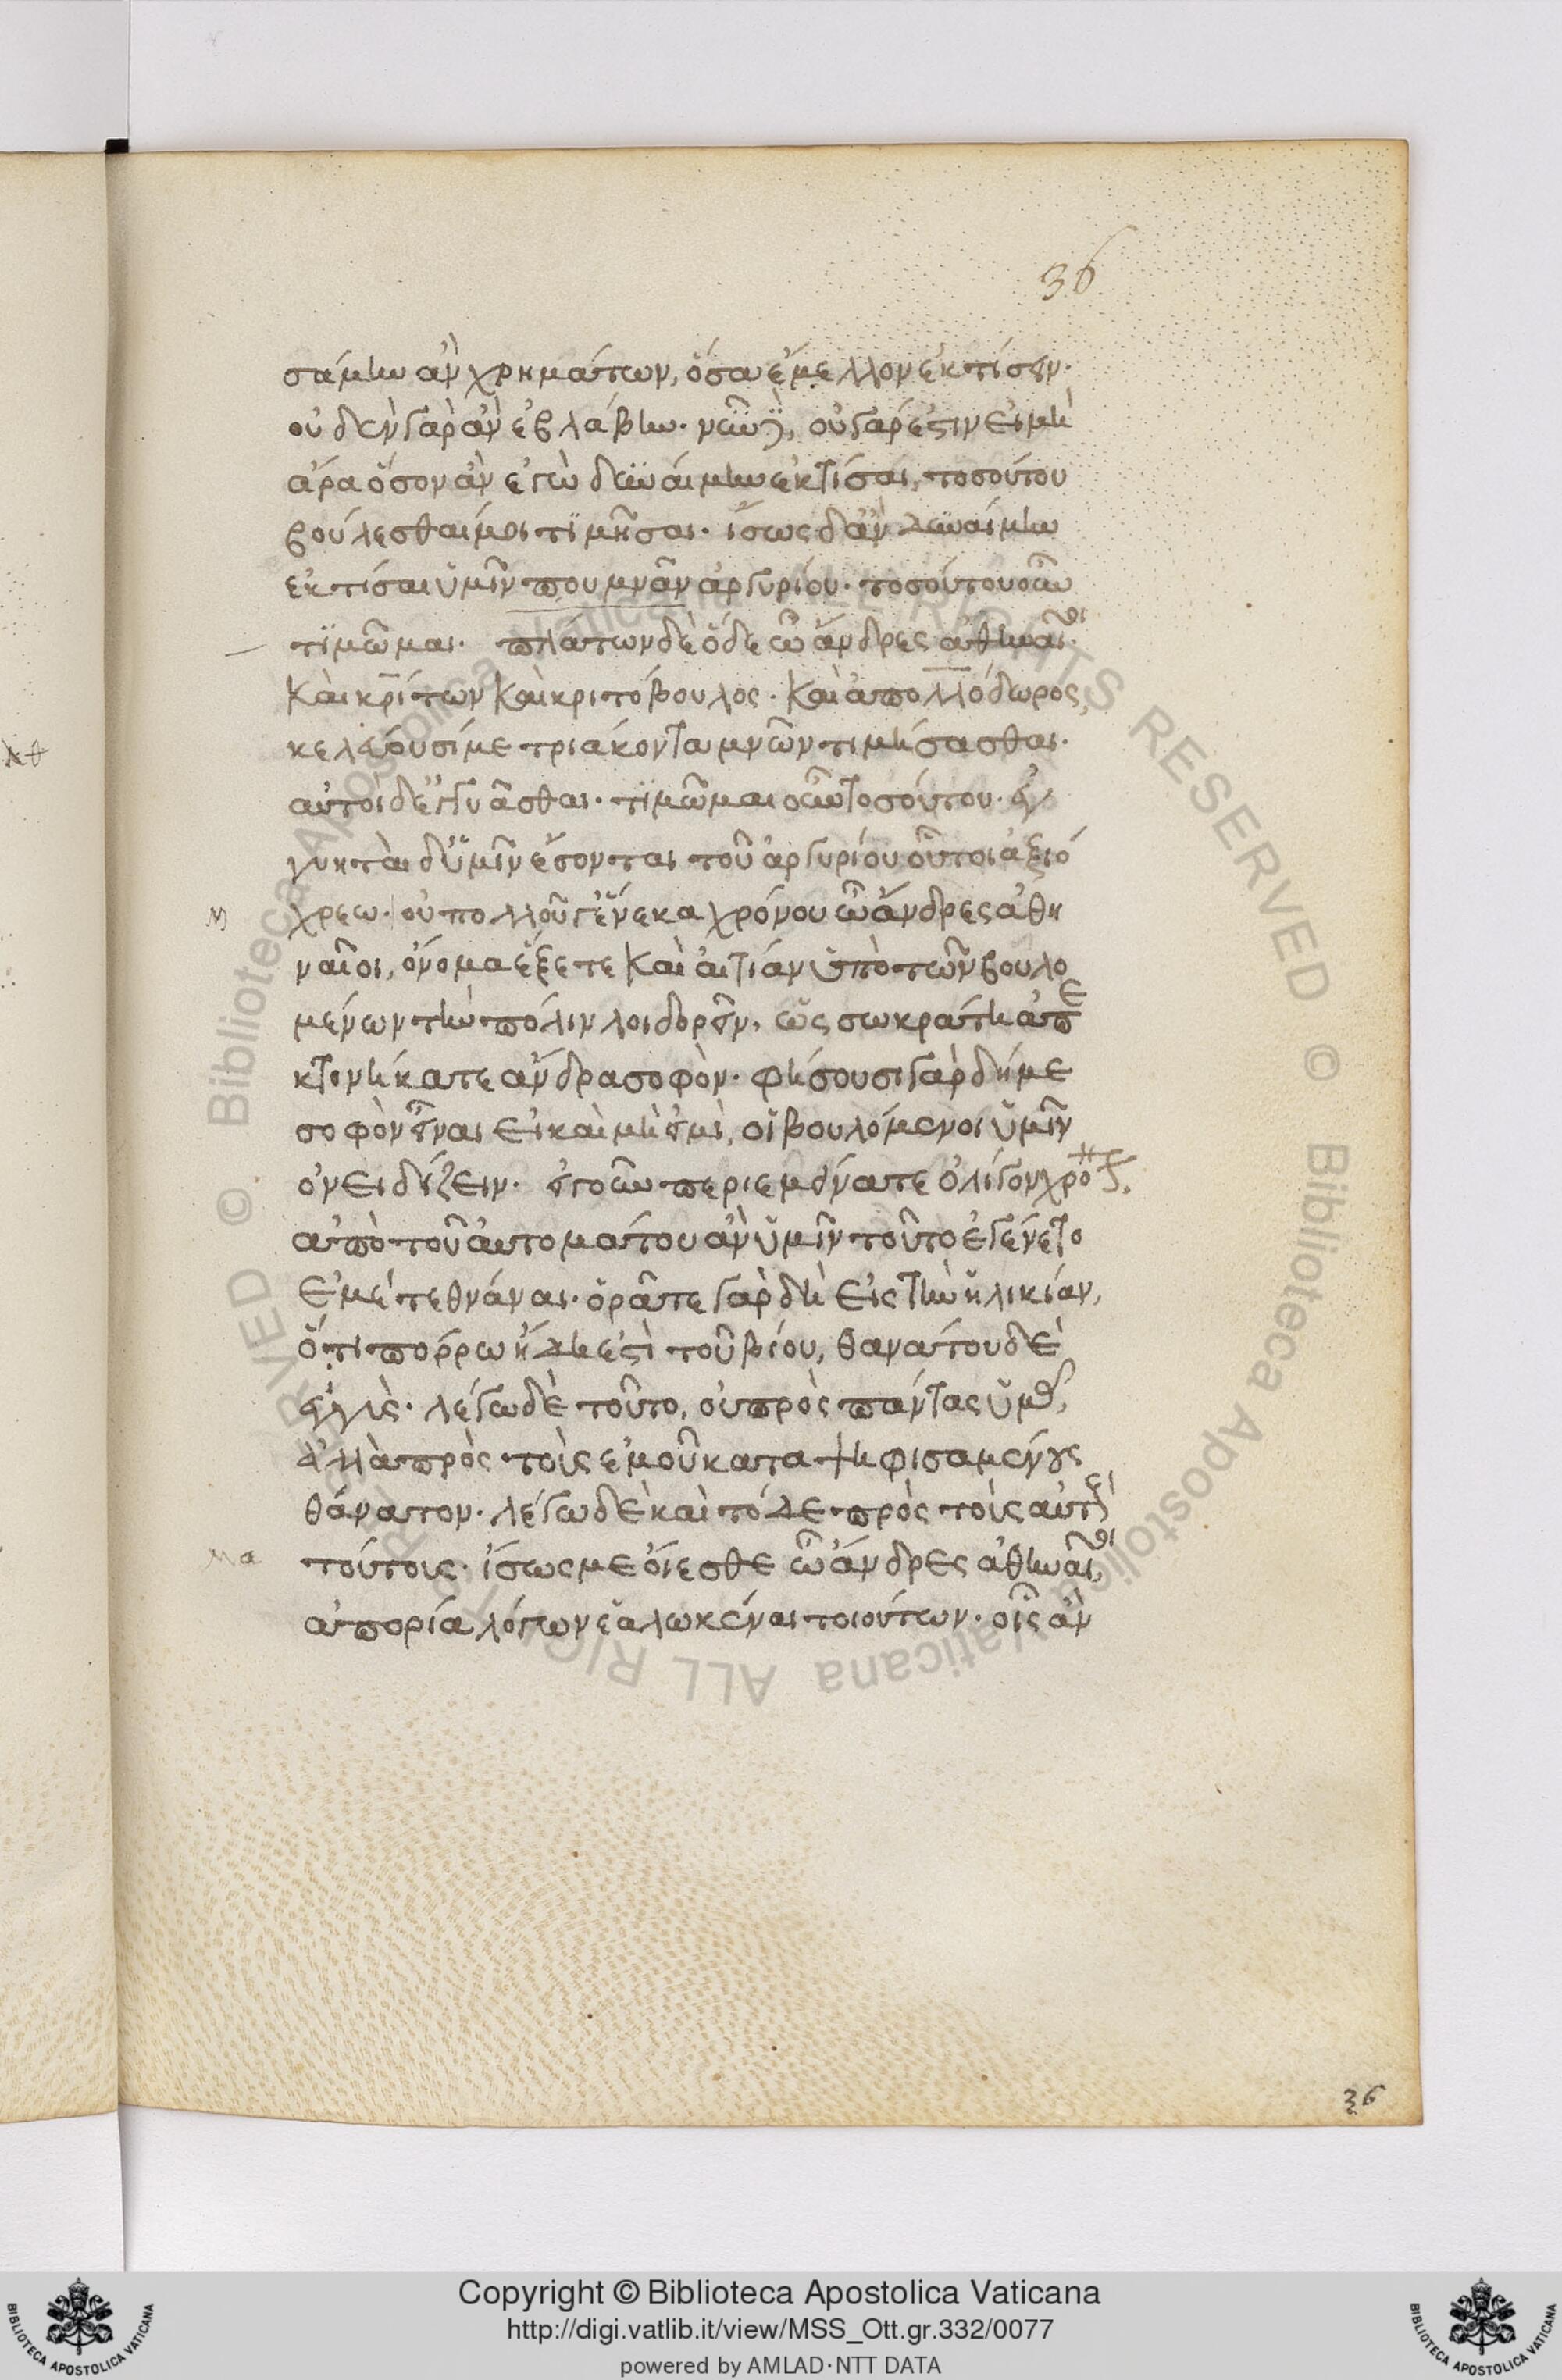 36
σάμην ἂν χρημάτων, ὅσα ἔμελλον ἐκτίσειν·
οὐδὲν γὰρ ἂν ἐβλάβην· νῦν δὲ, οὐ γάρ ἐστιν εἰ μὴ
ἄρα ὅσον ἂν ἐγὼ δυναίμην ἐκτίσαι, τοσούτου
βούλεσθαί μοι τιμῆσαι· ἴσως δ' ἂν δυναίμην
ἐκτίσαι ὑμῖν που μνᾶν ἀργυρίου· τοσούτου οὖν
τιμῶμαι· πλάτων δὲ ὅδε ὦ ἄνδρες ἀθηναῖοι·
καὶ κρίτων καὶ κριτόβουλος· καὶ ἀπολλόδωρος,
κελεύουσί με τριάκοντα μνῶν τιμήσασθαι·
αὐτοὶ δ' ἐγγυᾶσθαι· τιμῶμαι οὖν τοσούτου· ἐγ
γυηταὶ δ' ὑμῖν ἔσονται τοῦ ἀργυρίου οὗτοι ἀξιό
χρεω· οὐ πολλοῦ γ' ἕνεκα χρόνου ὦ ἄνδρες ἀθη
ναῖοι, ὄνομα ἕξετε καὶ αἰτίαν ὑπὸ τῶν βουλο
μένων τὴν πόλιν λοιδορεῖν, ὡς σωκράτη ἀπε
κτονήκατε ἄνδρα σοφόν· φήσουσι γὰρ δή με
σοφὸν εἶναι εἰ καὶ μὴ εἰμὶ, οἱ βουλόμενοι ὑμῖν
ὀνειδίζειν· εἰ γοῦν περιεμείνατε ὀλίγον χρόνον,
ἀπὸ τοῦ αὐτομάτου ἂν ὑμῖν τοῦτο ἐγένετο
ἐμὲ τεθνάναι· ὁρᾶτε γὰρ δὴ εἰς τὴν ἡλικίαν,
ὅτι πόρρω ἤδη ἐστὶ τοῦ βίου, θανάτου δὲ
ἐγγύς· λέγω δὲ τοῦτο, οὐ πρὸς πάντας ὑμᾶς,
ἀλλὰ πρὸς τοὺς ἐμοῦ καταψηφισαμένους
θάνατον· λέγω δὲ καὶ τόδε πρὸς τοὺς αὐτοὺς
τούτους· ἴσως με οἴεσθε ὦ ἄνδρες ἀθηναῖοι,
ἀπορίᾳ λόγων ἑαλωκέναι τοιούτων· οἷς ἂν
36
Copyright © Biblioteca Apostolica Vaticana
http://digi.vatlib.it/view/MSS_Ott.gr.332/0077
powered by AMLAD·NTT DATA
BIBLIOTECA APOSTOLICA VATICANA
BIBLIOTECA APOSTOLICA VATICANA